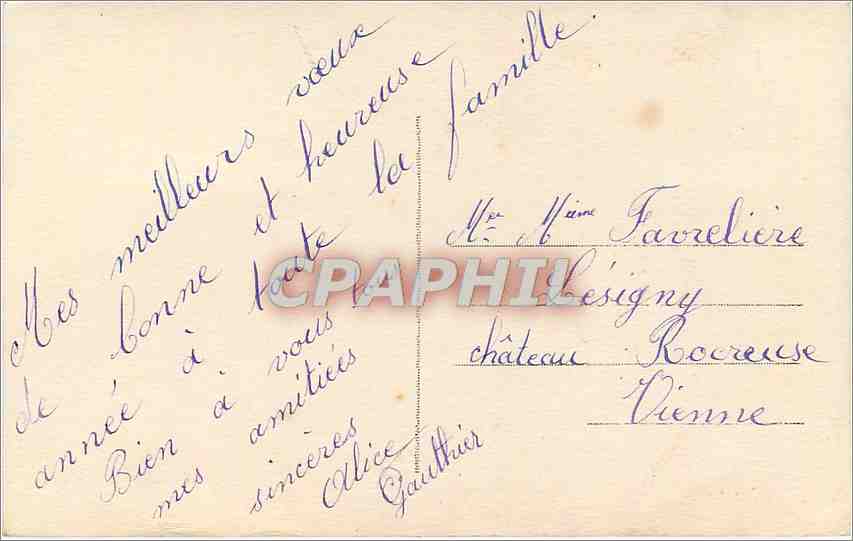 Mes meilleurs vœux
de bonne et heureuse
année à toute la famille.
Bien à vous tous
mes amitiés
sincères
Alice
Gauthier
Mer Mième Favrelière
Lésigny
château Rocreuse
Vienne
CPAPHIL